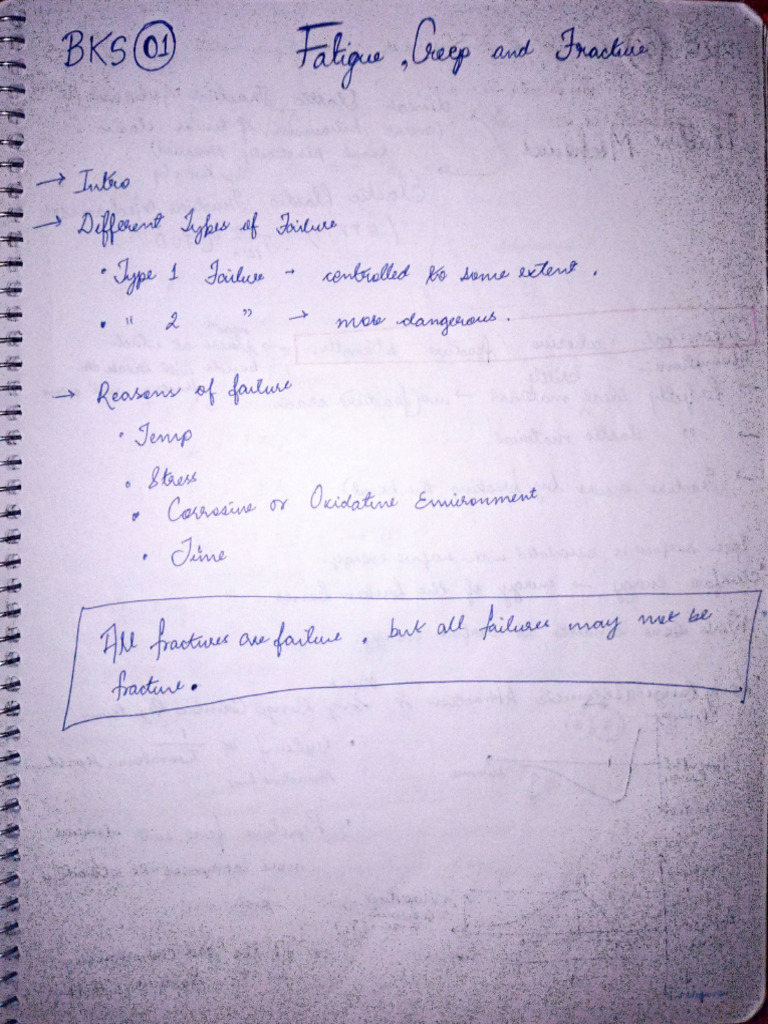 BKS 01 Fatigue, Creep and Fracture
→ Intro
→ Different Types of Failure
• Type 1 Failure → controlled to some extent.
• " 2 " → more dangerous.
→ Reasons of failure
• Temp
• Stress
• Corrosive or Oxidative Environment
• Time
All fractures are failure, but all failures may not be
fracture.